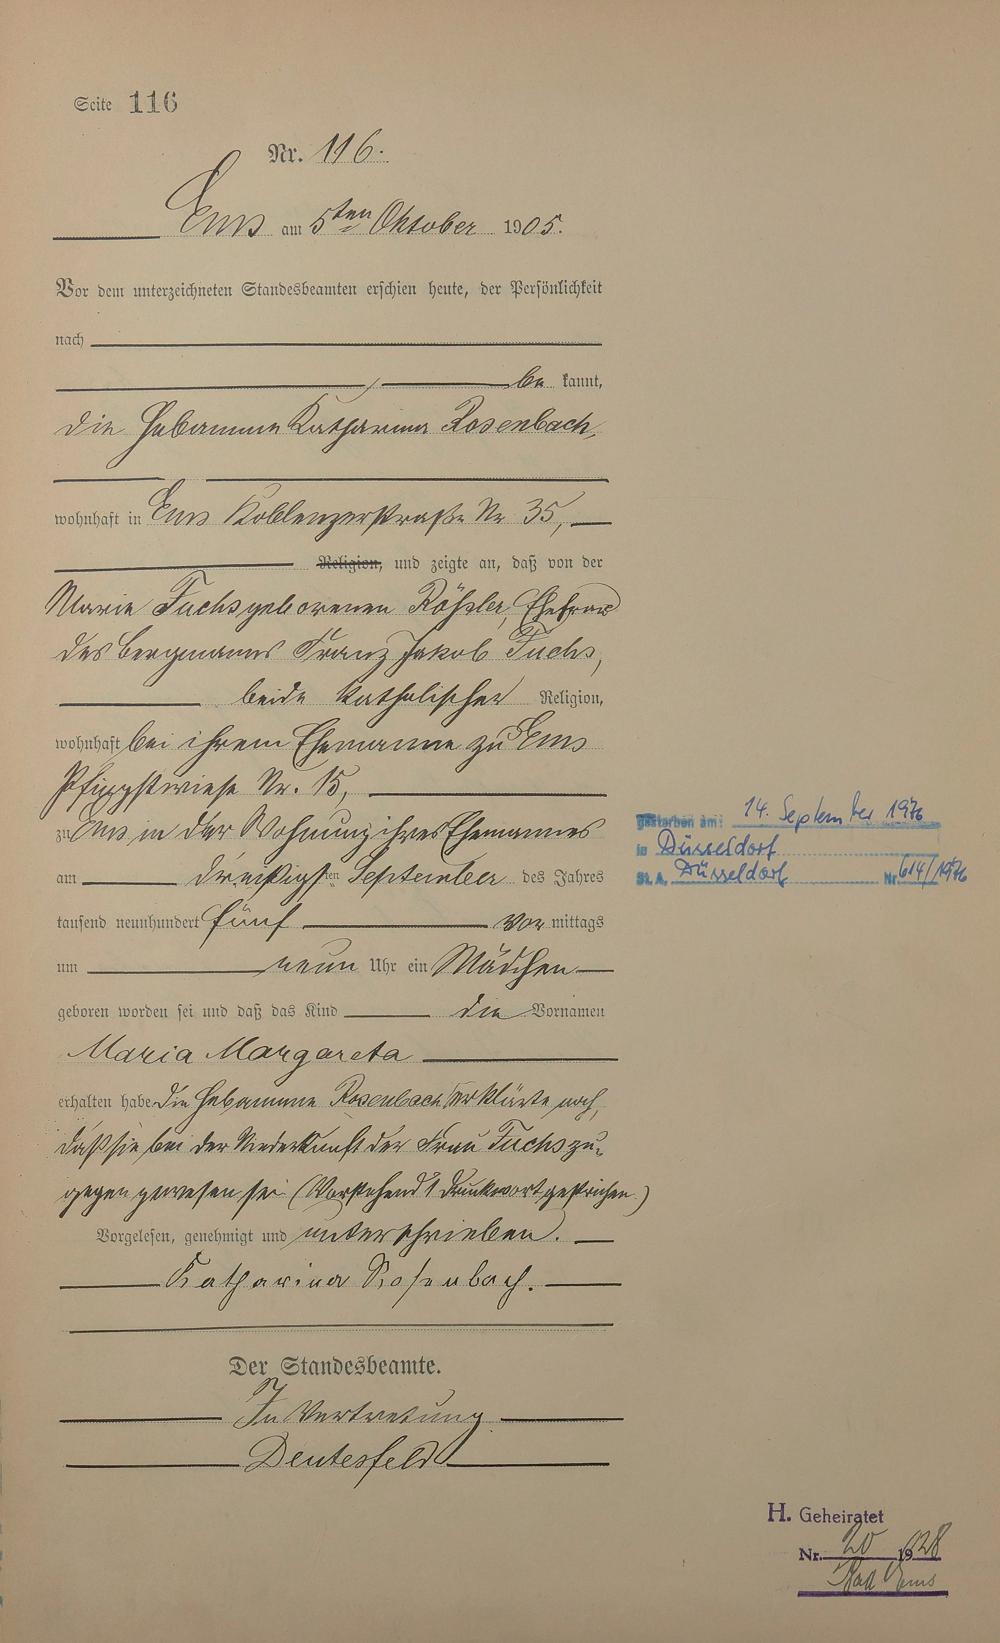 Seite 116
Nr. 116.
Ems am 5ten Oktober 1905.
Vor dem unterzeichneten Standesbeamten erschien heute, der Persönlichkeit
nach
be kannt,
die Hebamme Katharina Rosenbach,
wohnhaft in Ems Koblenzerstraße Nr 35,
Religion, und zeigte an, daß von der
Marie Fuchs geborenen Rößler, Ehefrau
des Bergmanns Franz Jakob Fuchs,
beide katholischer Religion,
wohnhaft bei ihrem Ehemanne zu Ems
Pfingstwiese Nr. 15,
zu Ems in der Wohnung ihres Ehemannes
am dreißigsten September des Jahres
tausend neunhundert fünf vor mittags
um neun Uhr ein Mädchen
geboren worden sei und daß das Kind die Vornamen
Maria Margareta
erhalten habe. Die Hebamme Rosenbach erklärte noch,
daß sie bei der Niederkunft der Frau Fuchs zu-
gegen gewesen sei (Vorstehend 1 Druckwort gestrichen.)
Vorgelesen, genehmigt und unterschrieben.
Katharina Rosenbach.
Der Standesbeamte.
In Vertretung
Deutesfeld
gestorben am: 14. September 1976
in Düsseldorf
St. A. Düsseldorf Nr. 614/1976
H. Geheiratet
Nr. 20 1928
Bad Ems